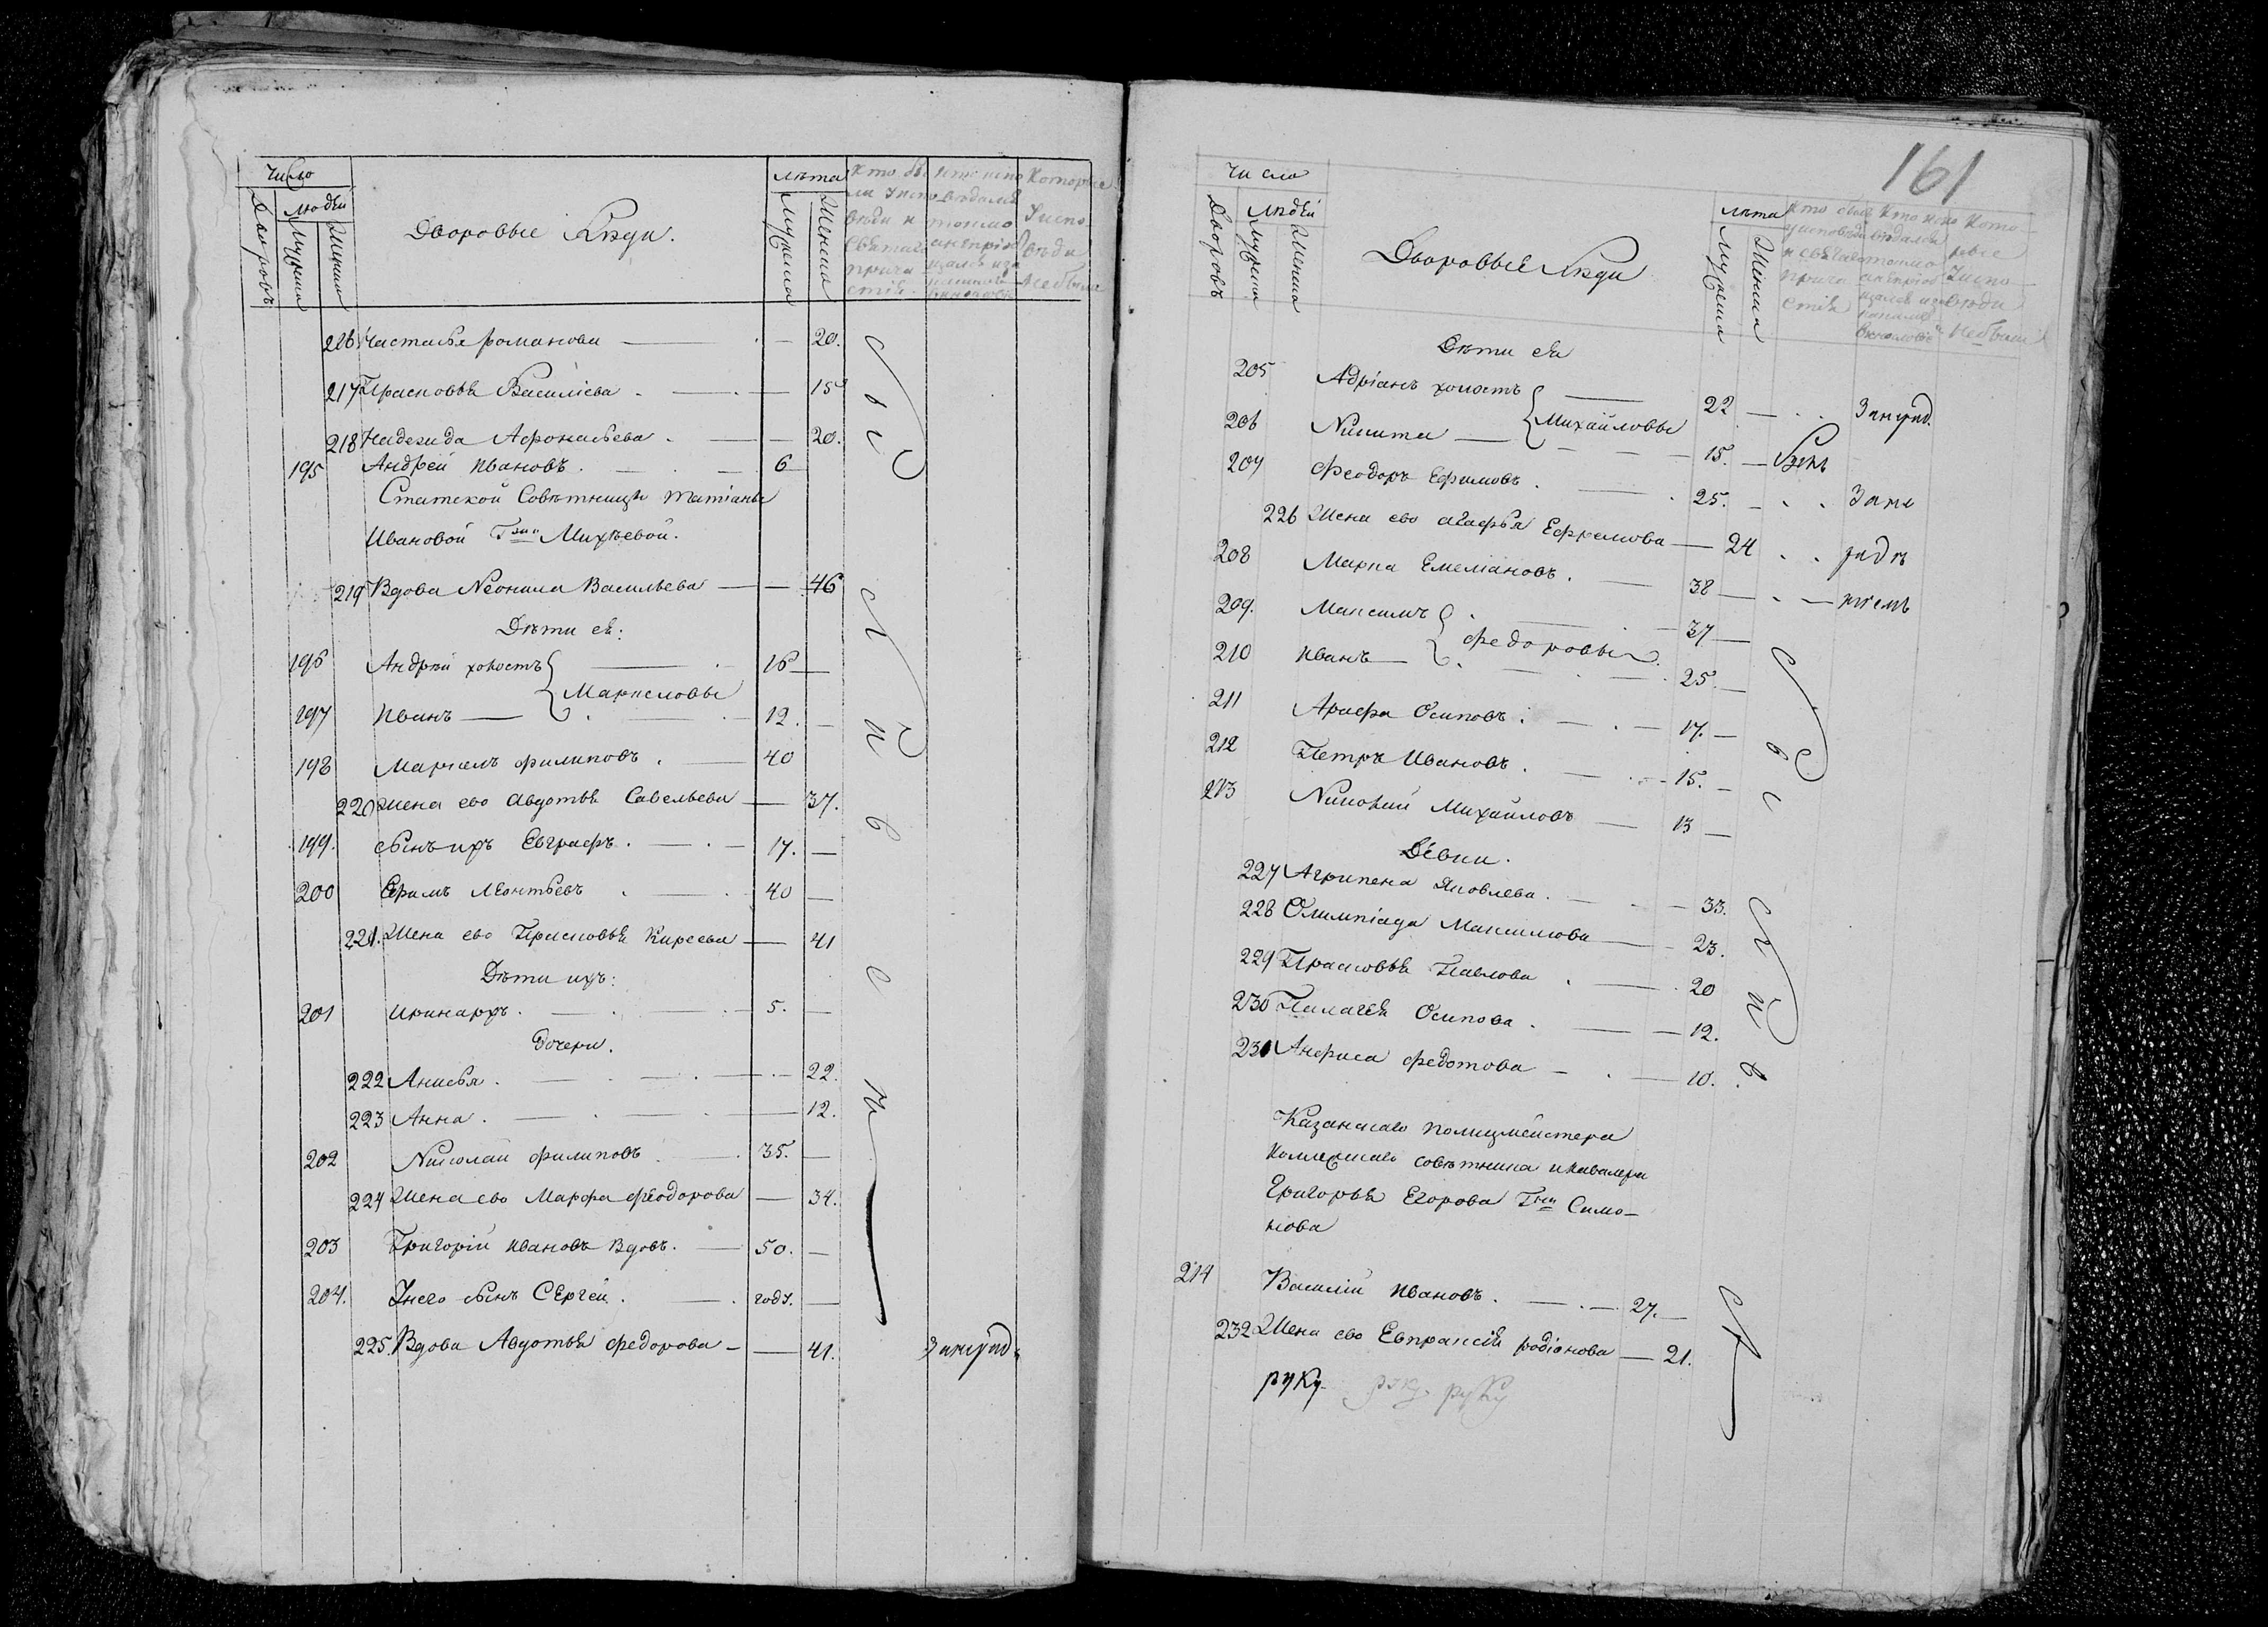 Число
Дворовъ
Людей
Мужеска
Женска
Дворовые Люди.
лѣта
Мужеска
Женска
Кто бы
ли У испо
вѣди и
Святаго
прича
стія.
Которые
У испо
вѣди
не были
216 Настасья романова — 20.
217 Прасковья Василіева — 15
218 Надежда Афонасьева — 20.
195 Андрей Ивановъ. — 6
Статской Совѣтницы татіаны
Ивановой Гжи Михѣевой.
219 Вдова Неонила Васильева — 46
Дѣти ея:
196 Андрѣй холостъ — 16 —
Маркеловы
197 Иванъ — 12. —
198 Маркелъ филиповъ. — 40
220 Жена ево Авдотья Савельева — 37.
199. сынъ ихъ Евграфъ. — 17. —
200 Ефимъ Леонтьевъ — 40 —
221. Жена ево Прасковья Киреева — 41
Дѣти ихъ:
201 Иринархъ. — 5. —
дочери.
222 Анисья. — 22.
223 Анна. — 12.
202 Николай филиповъ — 35. —
224 Жена ево Марфа феодорова — 34.
203 Григорій Ивановъ Вдовъ. — 50. —
204. У него сынъ СЕргей. — годъ. —
225. Вдова Авдотья Федорова — 41.
161
Число
Дворовъ
Людей
Мужеска
Женска
Дворовые Люди
лѣта
Мужеска
Женска
Кото
рые
У испо
вѣди
не были
Дѣти ея
205 Адріанъ холостъ — 22 —
Михайловы
206 Никита — 15. —
207 Феодоръ Ефимовъ. — 25. —
226 Жена ево агафья Ефремова — 24
208 Марка Емеліановъ. — 38 —
209. Максимъ — 37 —
федоровы
210 Иванъ — 25. —
211 Арефа Осиповъ. — 17. —
212 Петръ Ивановъ. — 15. —
213 Николай Михайловъ — 13 —
Дѣвки.
227 Агрипена Яковлева. — 33.
228 Олимпіада Максимова — 23.
229 Прасковья Павлова — 20
230 Палагея Осипова. — 12.
231 Анфиса федотова — 10.
Казанскаго полицмейстера
Коллежскаго совѣтника и кавалера
Григорья Егорова Гна Симо-
нова
214 Василій Ивановъ. — 27. —
232 Жена ево Евпраксія родіонова — 21.
руку руку руку